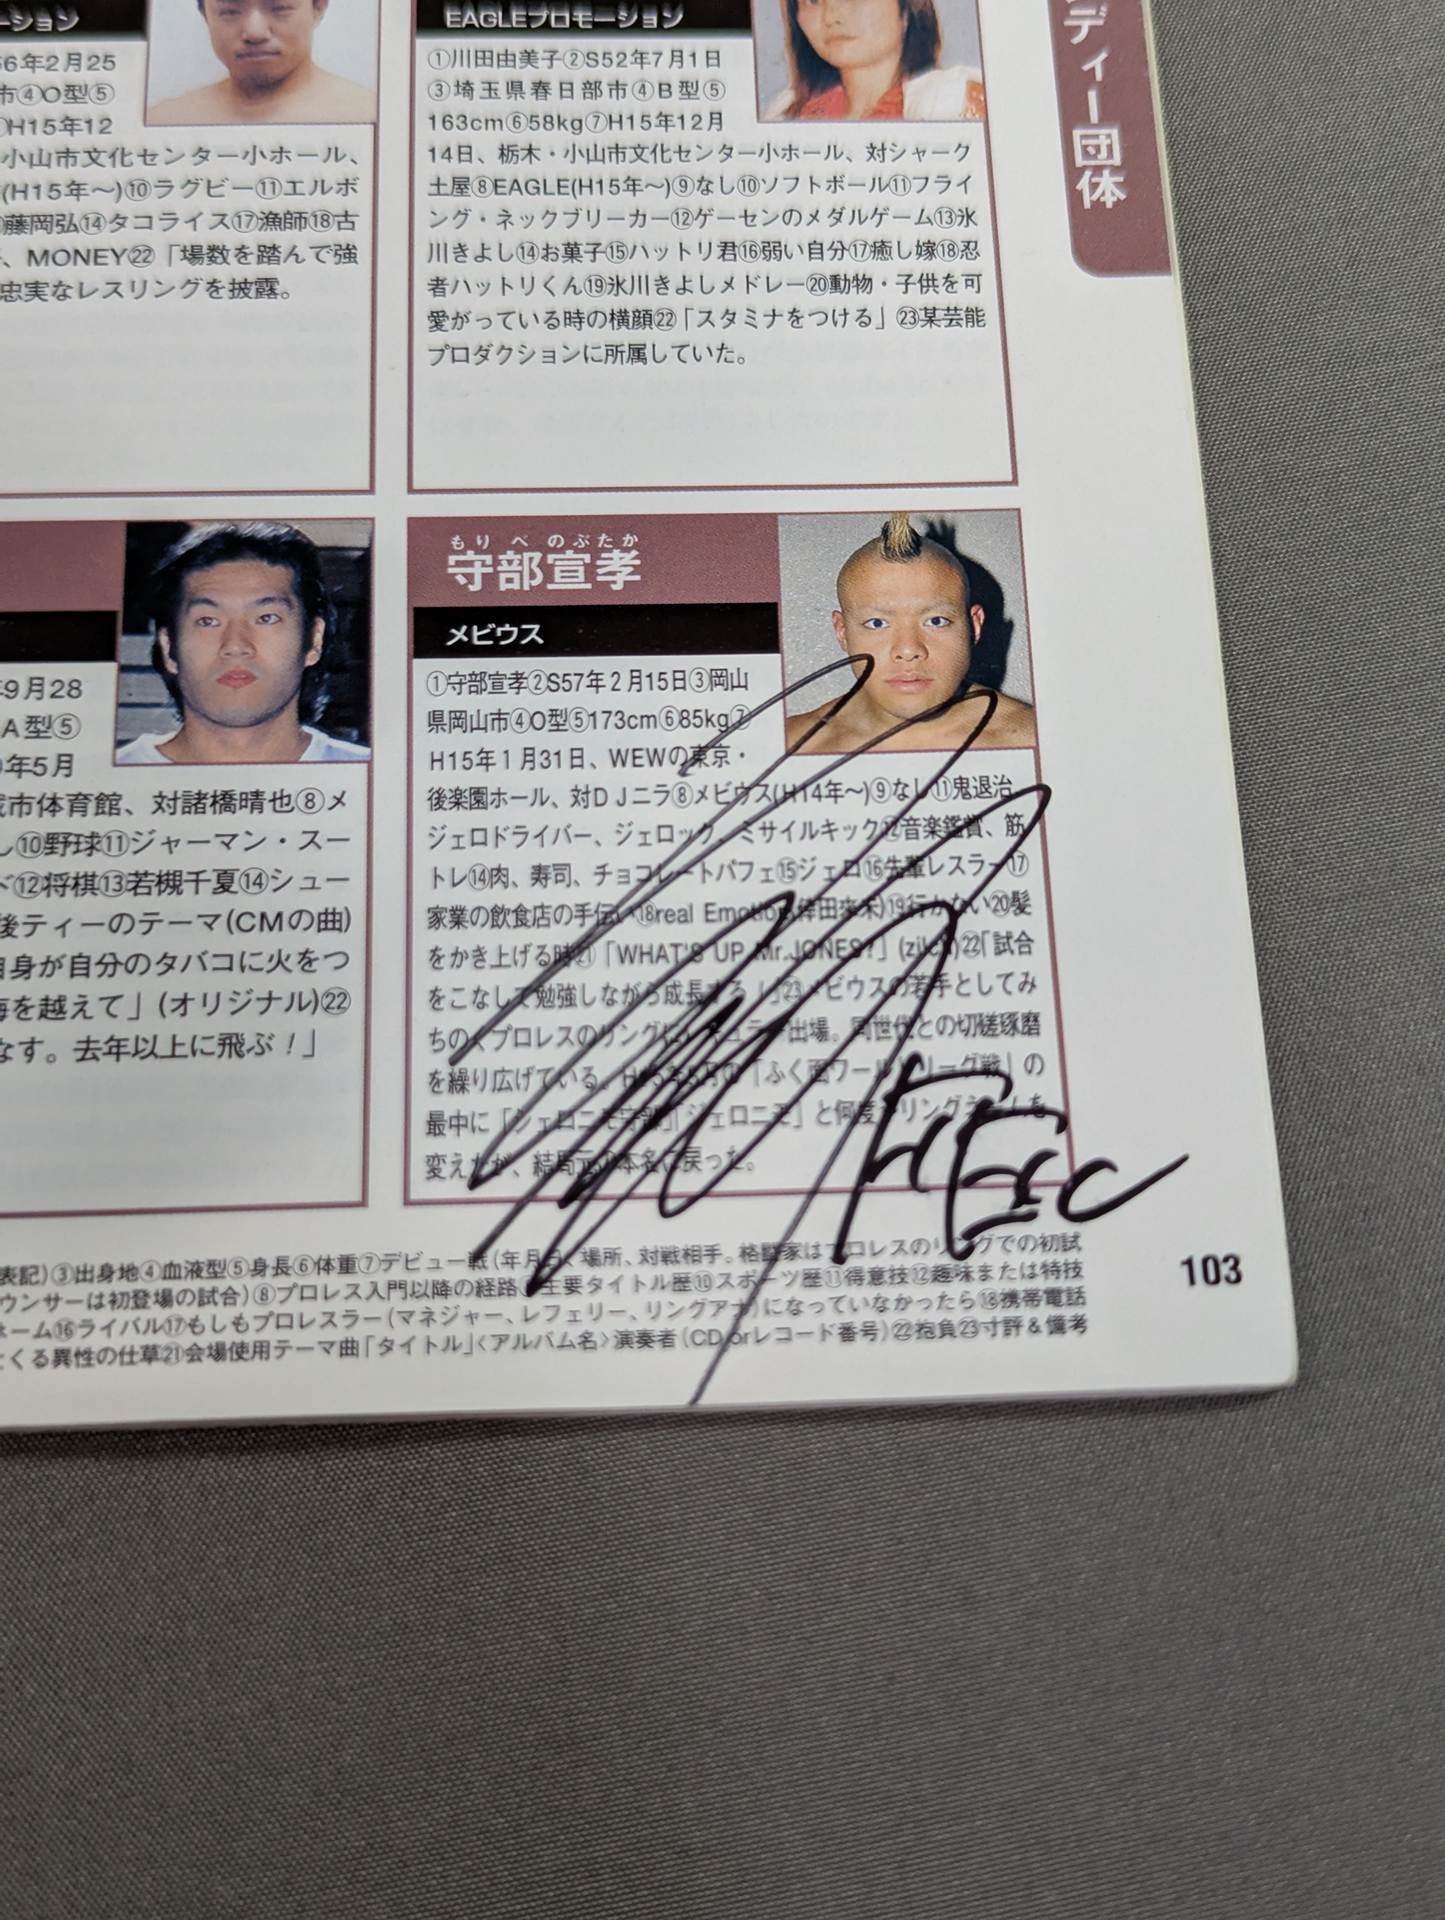 ーション
56年2月25
市④O型⑤
H15年12
小山市文化センター小ホール、
(H15年〜)⑩ラグビー⑪エルボ
藤岡弘⑭タコライス⑰漁師⑱古
、MONEY㉒「場数を踏んで強
忠実なレスリングを披露。
EAGLEプロモーション
①川田由美子②S52年7月1日
③埼玉県春日部市④B型⑤
163cm⑥58kg⑦H15年12月
14日、栃木・小山市文化センター小ホール、対シャーク
土屋⑧EAGLE(H15年〜)⑨なし⑩ソフトボール⑪フライ
ング・ネックブリーカー⑫ゲーセンのメダルゲーム⑬氷
川きよし⑭お菓子⑮ハットリ君⑯弱い自分⑰癒し嫁⑱忍
者ハットリくん⑲氷川きよしメドレー⑳動物・子供を可
愛がっている時の横顔㉒「スタミナをつける」㉓某芸能
プロダクションに所属していた。
ディー団体
年9月28
A型⑤
年5月
市体育館、対諸橋晴也⑧メ
し⑩野球⑪ジャーマン・スー
⑫将棋⑬若槻千夏⑭シュー
後ティーのテーマ(CMの曲)
自身が自分のタバコに火をつ
海を越えて」(オリジナル)㉒
なす。去年以上に飛ぶ！」
もりべ のぶたか
守部宣孝
メビウス
①守部宣孝②S57年2月15日③岡山
県岡山市④O型⑤173cm⑥85kg⑦
H15年1月31日、WEWの東京・
後楽園ホール、対DJニラ⑧メビウス(H14年〜)⑨なし⑪鬼退治、
ジェロドライバー、ジェロック、ミサイルキック⑫音楽鑑賞、筋
トレ⑭肉、寿司、チョコレートパフェ⑮ジェロ⑯先輩レスラー⑰
家業の飲食店の手伝い⑱real Emotion(倖田來未)⑲行かない⑳髪
をかき上げる時㉑「WHAT'S UP Mr.JONES?」㉒「試合
をこなして勉強しながら成長する！」㉓メビウスの若手としてみ
ちのくプロレスのリングにレギュラー出場。同世代との切磋琢磨
を繰り広げている。H15年5月の「ふく面ワールドリーグ戦」の
最中に「ジェロニモ守部」「ジェロニモ」と何度かリングネームを
変えたが、結局元の本名に戻った。
表記)③出身地④血液型⑤身長⑥体重⑦デビュー戦(年月日、場所、対戦相手。格闘家はプロレスのリングでの初試
ウンサーは初登場の試合)⑧プロレス入門以降の経路⑨主要タイトル歴⑩スポーツ歴⑪得意技⑫趣味または特技
ホーム⑯ライバル⑰もしもプロレスラー(マネジャー、レフェリー、リングアナ)になっていなかったら⑱携帯電話
とくる異性の仕草㉑会場使用テーマ曲「タイトル」〈アルバム名〉演奏者(CD orレコード番号)㉒抱負㉓寸評＆備考
103